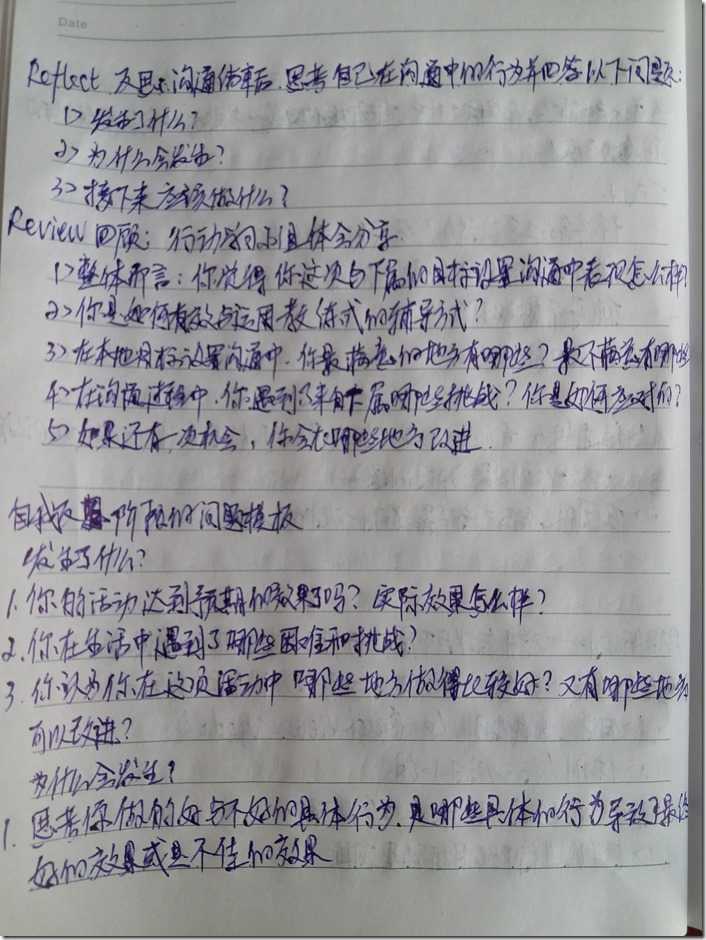 Date
Reflect 反思：沟通结束后，思考自己在沟通中的行为并回答以下问题：
1> 发生了什么？
2> 为什么会发生？
3> 接下来应该做什么？
Review 回顾：行动学习小组体会分享
1> 整体而言：你觉得你这次与下属的目标设置沟通中表现怎么样？
2> 你是如何有效去运用教练式的辅导方式？
3> 在本地目标设置沟通中，你最满意的地方有哪些？最不满意有哪些
4> 在沟通过程中，你遇到了来自下属哪些挑战？你是如何应对的？
5> 如果还有一次机会，你会在哪些地方改进
自我反思阶段的问题模板
发生了什么？
1. 你的活动达到预期的效果了吗？实际效果怎么样？
2. 你在生活中遇到了哪些困难和挑战？
3. 你认为你在这项活动中哪些地方做得比较好？又有哪些地方
可以改进？
为什么会发生？
1. 思考你做的好与不好的具体行为，是哪些具体的行为导致了最终
好的效果或且不佳的效果